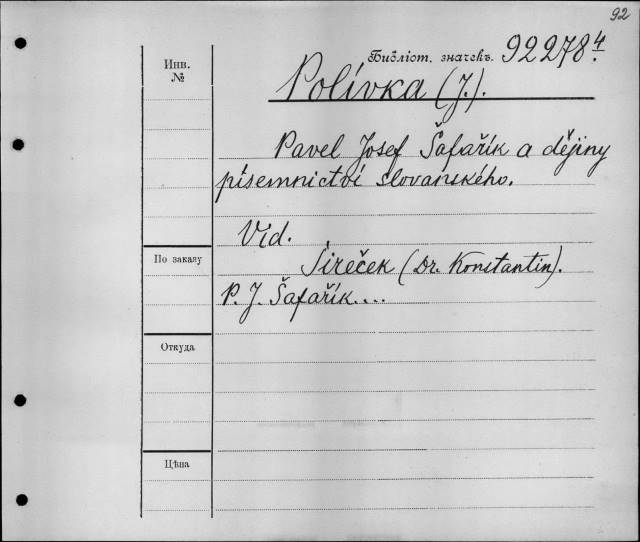 92
Инв.
№
Библіот. значекъ. 92278⁴.
Polívka (J.).
Pavel Josef Šafařík a dějiny
písemnictví slovanského.
Vid.
Jireček (Dr. Konstantin).
P. J. Šafařík....
По заказу
Откуда
Цѣна